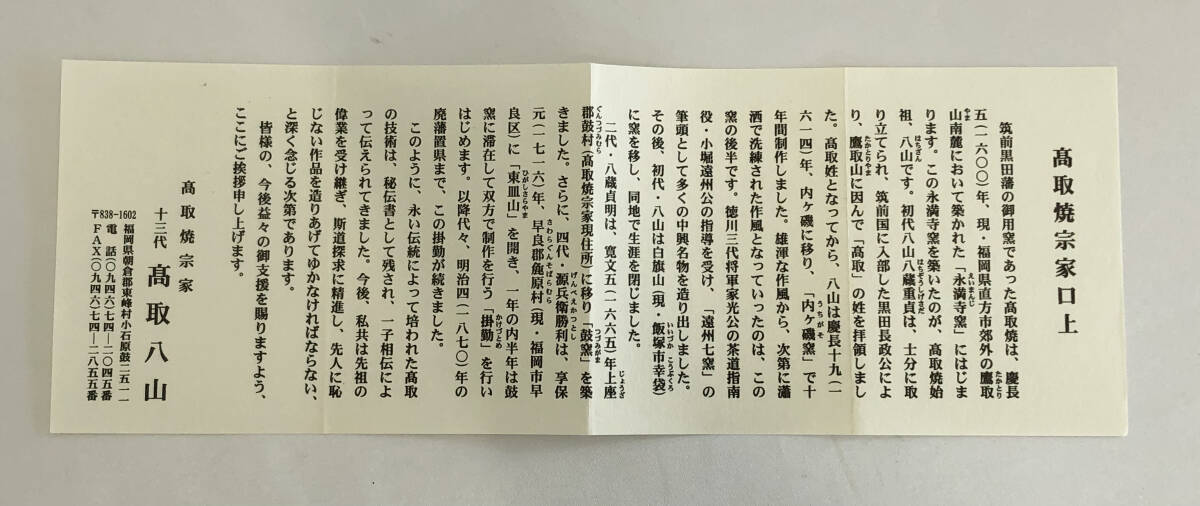 髙取焼宗家口上
筑前黒田藩の御用窯であった髙取焼は、慶長
五(一六〇〇)年、現・福岡県直方市郊外の鷹取
山南麓において築かれた「永満寺窯」にはじま
ります。この永満寺窯を築いたのが、髙取焼始
祖、八山です。初代八山八蔵重貞は、士分に取
り立てられ、筑前国に入部した黒田長政公によ
り、鷹取山に因んで「髙取」の姓を拝領しまし
た。髙取姓となってから、八山は慶長十九(一
六一四)年、内ヶ磯に移り、「内ヶ磯窯」で十
年間制作しました。雄渾な作風から、次第に瀟
洒で洗練された作風となっていったのは、この
窯の後半です。徳川三代将軍家光公の茶道指南
役・小堀遠州公の指導を受け、「遠州七窯」の
筆頭として多くの中興名物を造り出しました。
その後、初代・八山は白旗山(現・飯塚市幸袋)
に窯を移し、同地で生涯を閉じました。
二代・八蔵貞明は、寛文五(一六六五)年上座
郡鼓村(髙取焼宗家現住所)に移り「鼓窯」を築
きました。さらに、四代・源兵衛勝利は、享保
元(一七一六)年、早良郡麁原村(現・福岡市早
良区)に「東皿山」を開き、一年の内半年は鼓
窯に滞在して双方で制作を行う「掛勤」を行い
はじめます。以降代々、明治四(一八七〇)年の
廃藩置県まで、この掛勤が続きました。
このように、永い伝統によって培われた髙取
の技術は、秘伝書として残され、一子相伝によ
って伝えられてきました。今後、私共は先祖の
偉業を受け継ぎ、斯道探求に精進し、先人に恥
じない作品を造りあげてゆかなければならない、
と深く念じる次第であります。
皆様の、今後益々の御支援を賜りますよう、
ここにご挨拶申し上げます。
髙取焼宗家
十三代 髙取八山
〒838-1602
福岡県朝倉郡東峰村小石原鼓二五一一
電話(〇九四六)七四―二〇四五番
FAX(〇九四六)七四―二八五五番